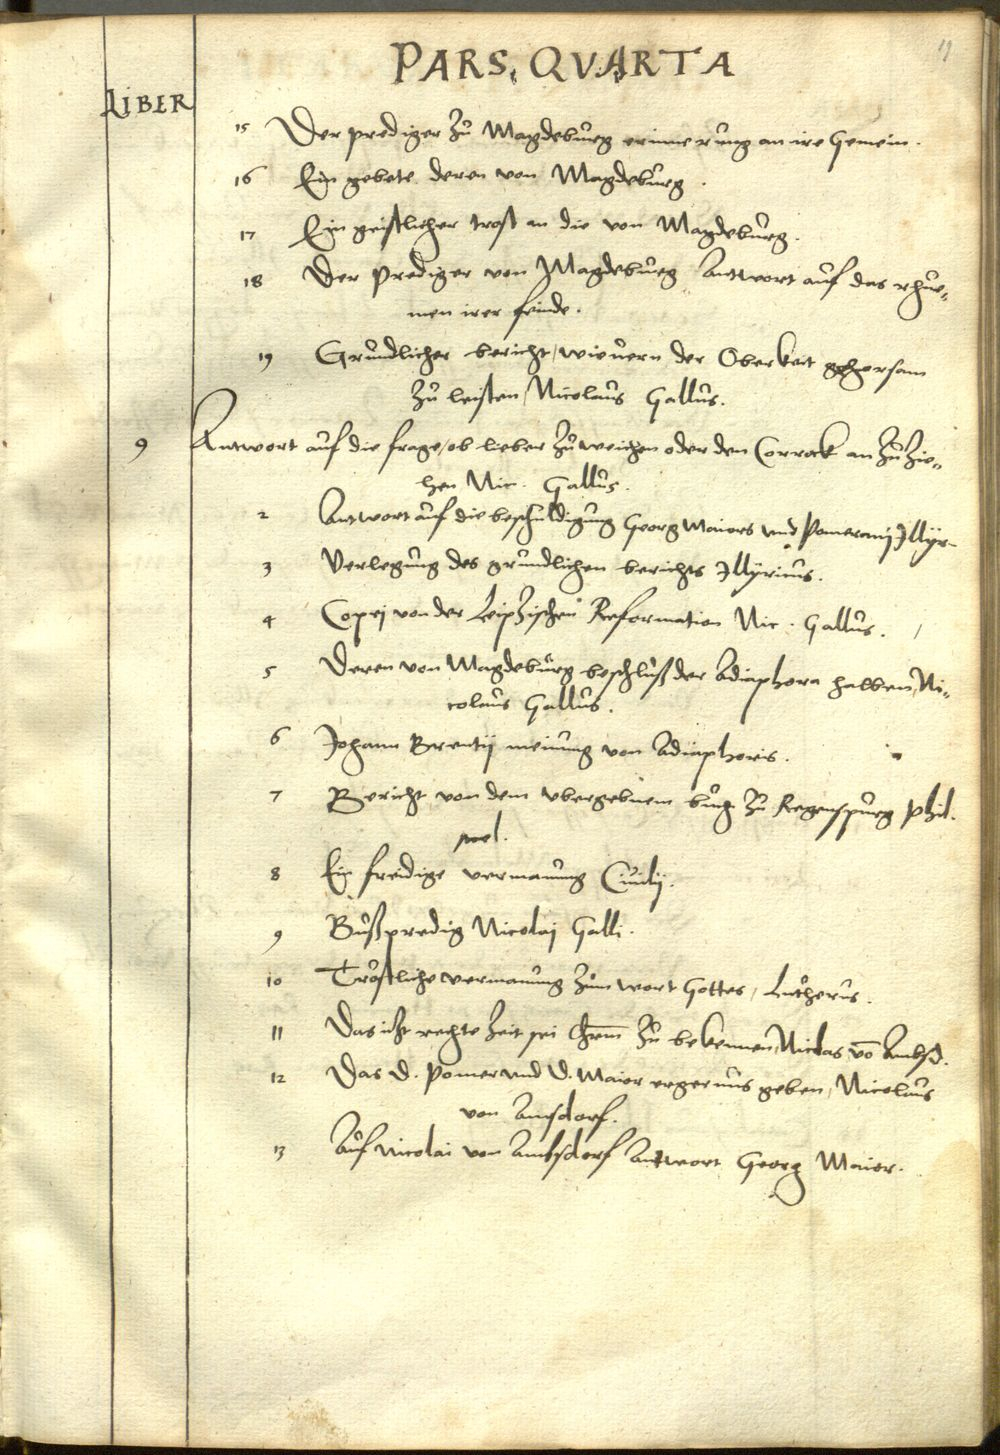 PARS, QVARTA
LIBER
15 Der prediger zů Magdebůrg erinnerung an ire Gemein.
16 Ein gebete deren von Magdebůrg.
17 Ein geistlicher trost an die von Magdebůrg.
18 Der Prediger von Magdebůrg Antwort aůf das rhůe-
men irer feinde.
19 Grůndlicher bericht, wie uern der Oberkeit gehorsam
zů leisten, Nicolaůs Gallůs.
9 Antwort aůf die frage, ob lieber zů weichen oder den Corrock an zů zie-
hen Nic. Gallůs.
2 Antwort aůf die beschůldigůng Georg Maiors vnd Pomeranj Jllyr-
3 Verlegůng des grůndlichen berichts Jllyricus.
4 Copej von der Leipzischen Reformation Nic. Gallůs.
5 Deren von Magdebůrg beschlůß der Adiaphora halben, Ni-
colaůs Gallůs.
6 Johann Brentij meinůng von Adiaphoris.
7 Bericht von dem vbergebnem bůch zů Regenspůrg Phil.
mel.
8 Ein freidige vermanůng
9 Bůßpredig Nicolaj Galli.
10 Tröstliche vermanůng zům wort Gottes, Lutherůs.
11 Das itzt rechte zeit sei Chrm̄ zů bekennen, Niclas võ Ambsd.
12 Das D. Pomer vnd D. Maior ergernus geben, Nicolaůs
von Amsdorf.
13 Aůf Nicolai von Ambsdorf Antwort Georg Maior.